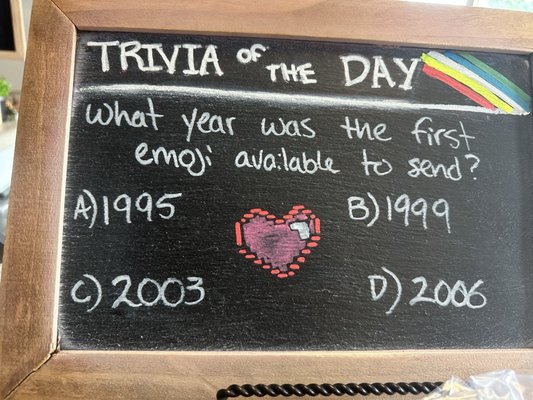 TRIVIA OF THE DAY
What year was the first
emoji available to send?
A) 1995 B) 1999
C) 2003 D) 2006